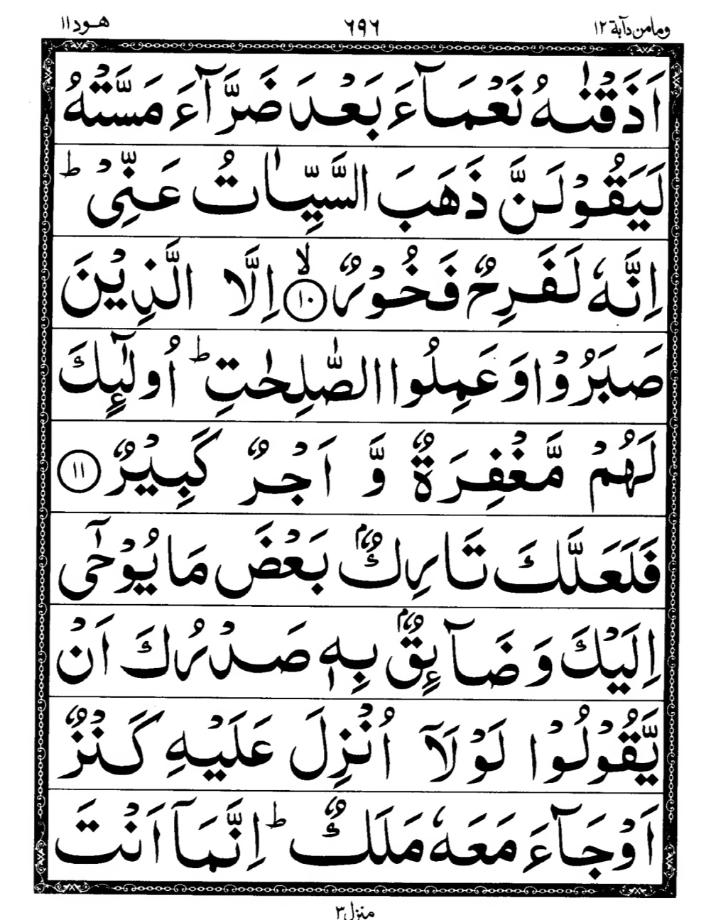 ومامن دآبة ١٢ ٦٩٦ هود ١١
اَذَقْنٰهُ نَعْمَآءَ بَعْدَ ضَرَّآءَ مَسَّتْهُ
لَيَقُوْلَنَّ ذَهَبَ السَّيِّاٰتُ عَنِّىْ ؕ
اِنَّهٗ لَفَرِحٌ فَخُوْرٌ ۙ﴿١٠﴾ اِلَّا الَّذِيْنَ
صَبَرُوْا وَعَمِلُوا الصّٰلِحٰتِ ؕ اُولٰٓئِكَ
لَهُمْ مَّغْفِرَةٌ وَّ اَجْرٌ كَبِيْرٌ ﴿١١﴾
فَلَعَلَّكَ تَارِكٌۢ بَعْضَ مَا يُوْحٰٓى
اِلَيْكَ وَ ضَآئِقٌۢ بِهٖ صَدْرُكَ اَنْ
يَّقُوْلُوْا لَوْلَآ اُنْزِلَ عَلَيْهِ كَنْزٌ
اَوْ جَآءَ مَعَهٗ مَلَكٌ ؕ اِنَّمَآ اَنْتَ
منزل ٣